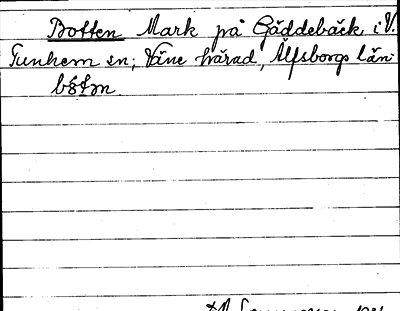 Botten Mark på Gäddebäck i V.
Tunhem sn; Väne härad, Älfsborgs län